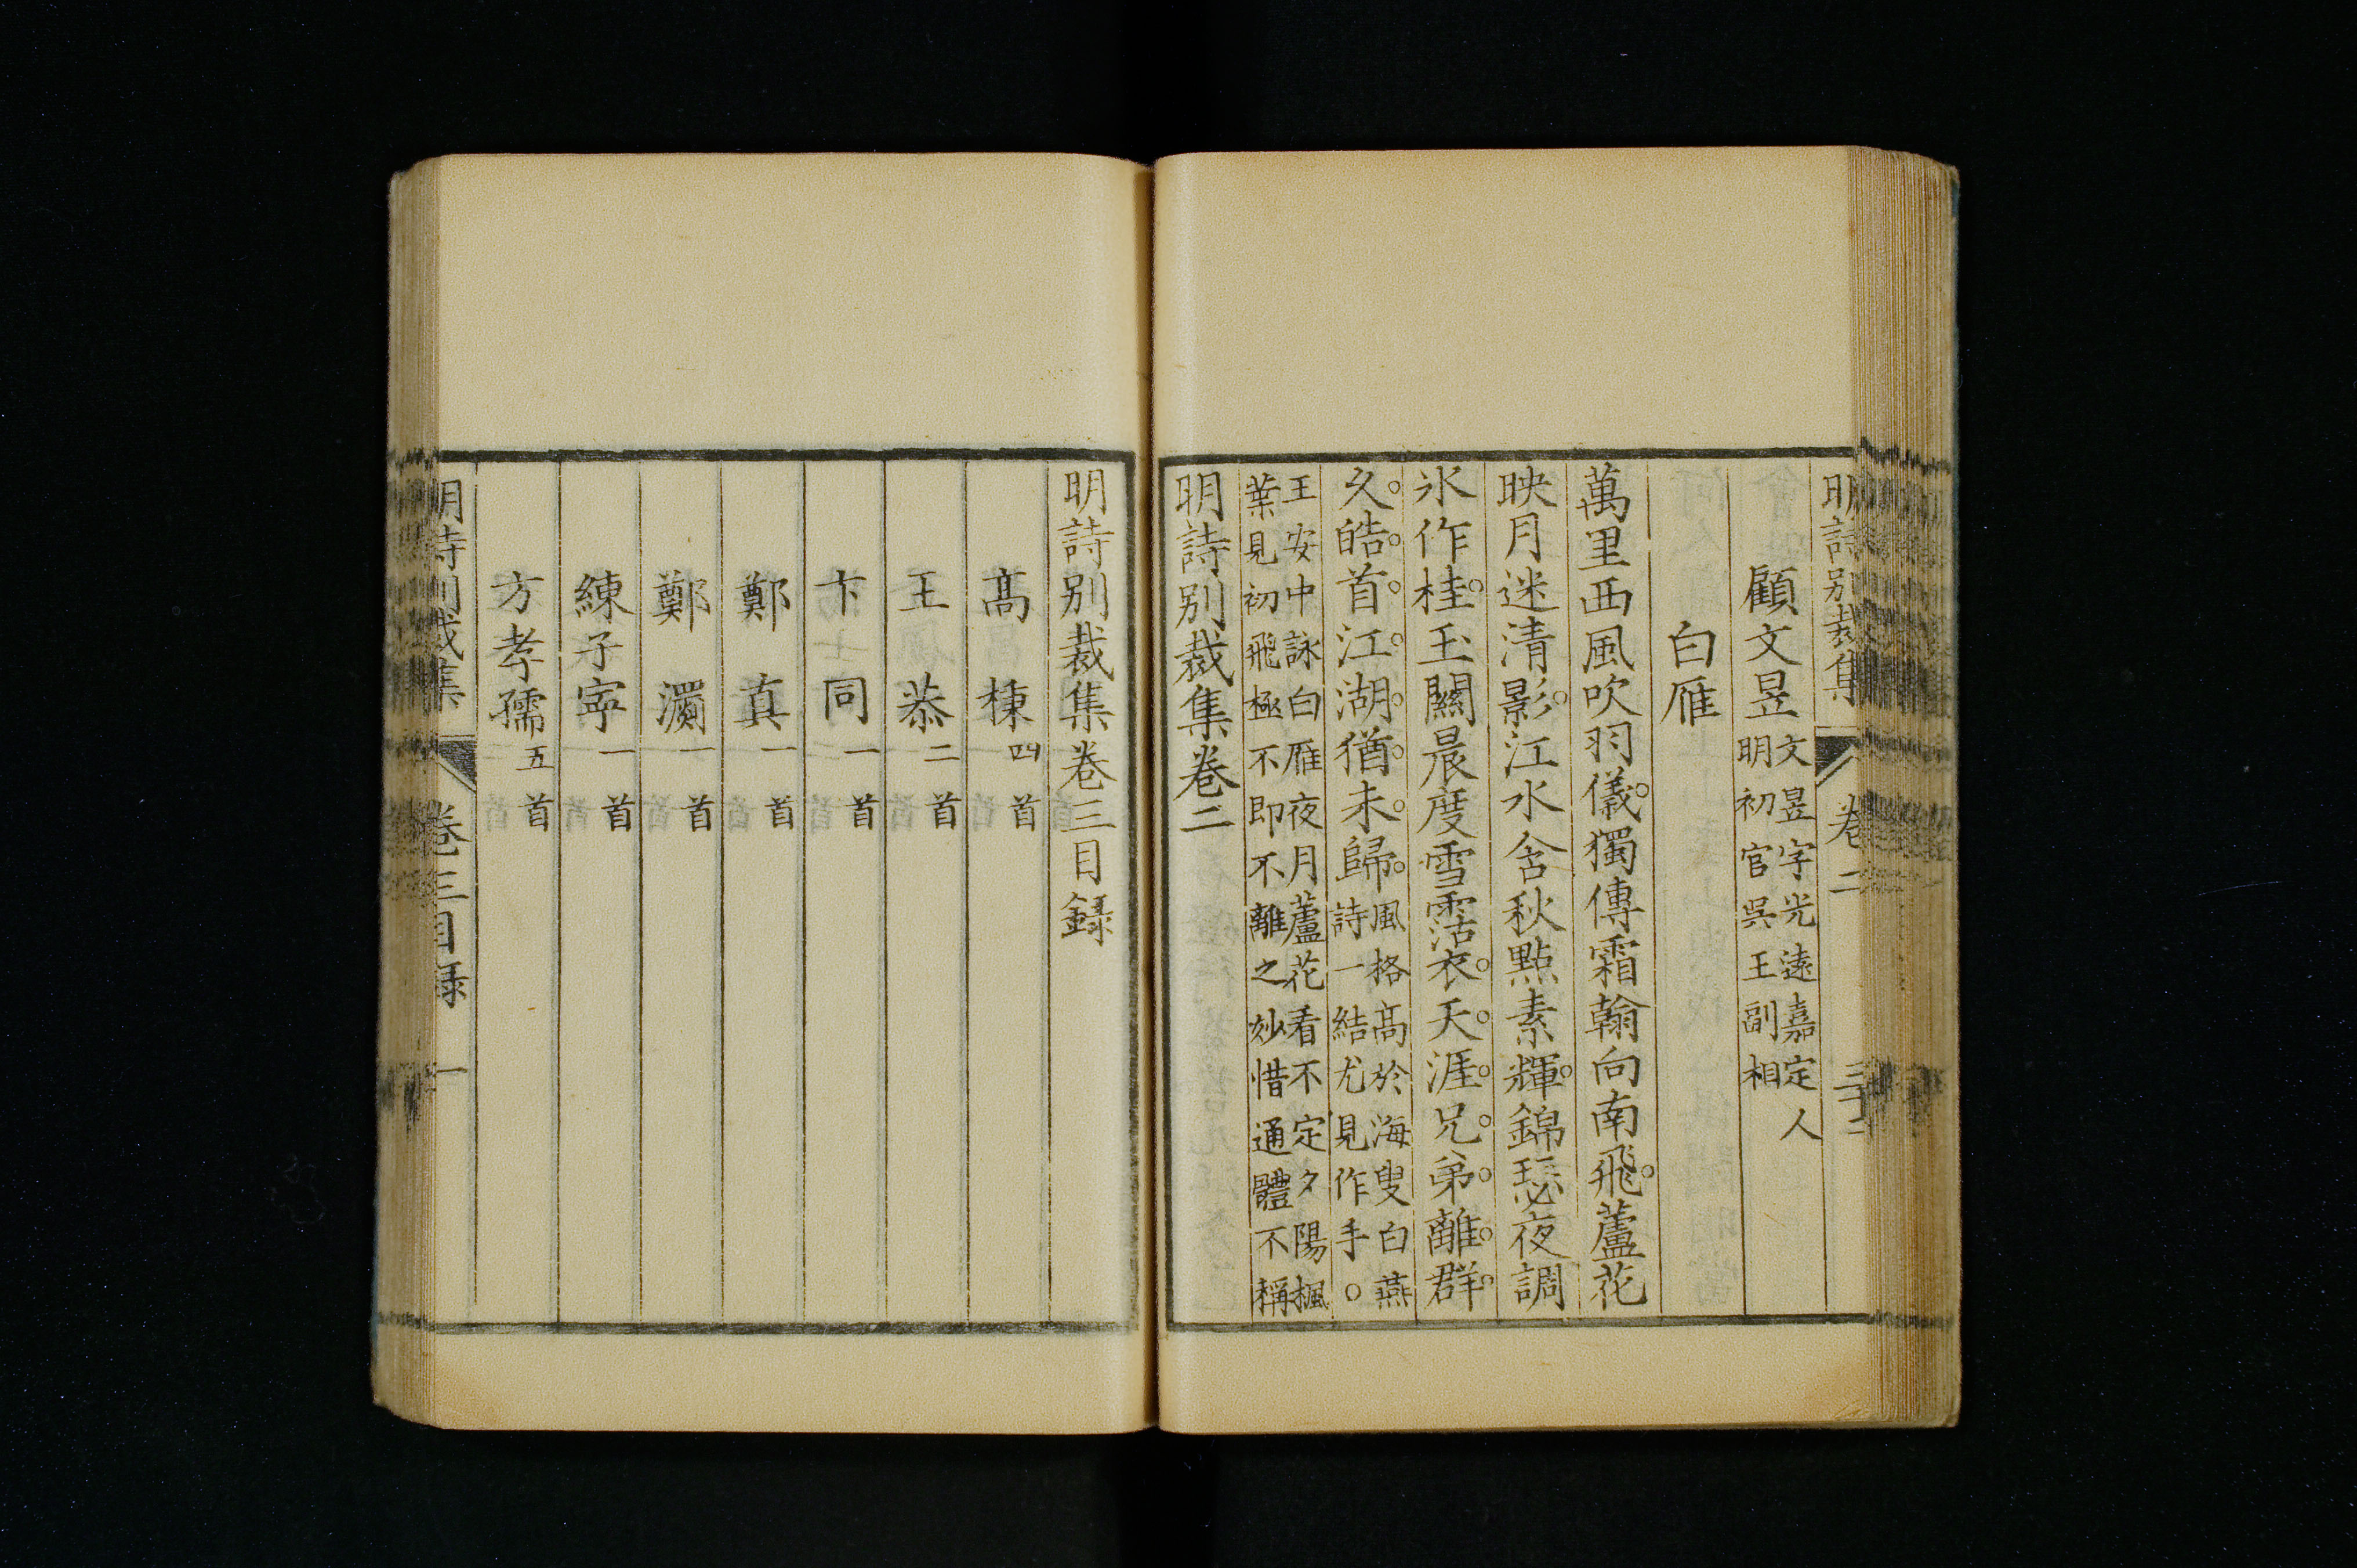 明詩別裁集 卷二
顧文昱文昱字光遠嘉定人
明初官吳王副相
白雁
萬里西風吹羽儀獨傳霜翰向南飛蘆花
映月迷清影江水含秋點素輝錦瑟夜調
氷作桂玉關晨度雪霑衣天涯兄弟離群
久皓首江湖猶未歸風格高於海叟白燕
詩一結尤見作手
王安中詠白雁夜月蘆花看不定夕陽楓
葉見初飛極不即不離之妙惜通體不稱
明詩別裁集卷二
明詩別裁集卷三目錄
高棅四首
王恭二首
卞同一首
鄭真一首
鄭灝一首
練子寧一首
方孝孺五首
明詩別裁集 卷三目錄 一